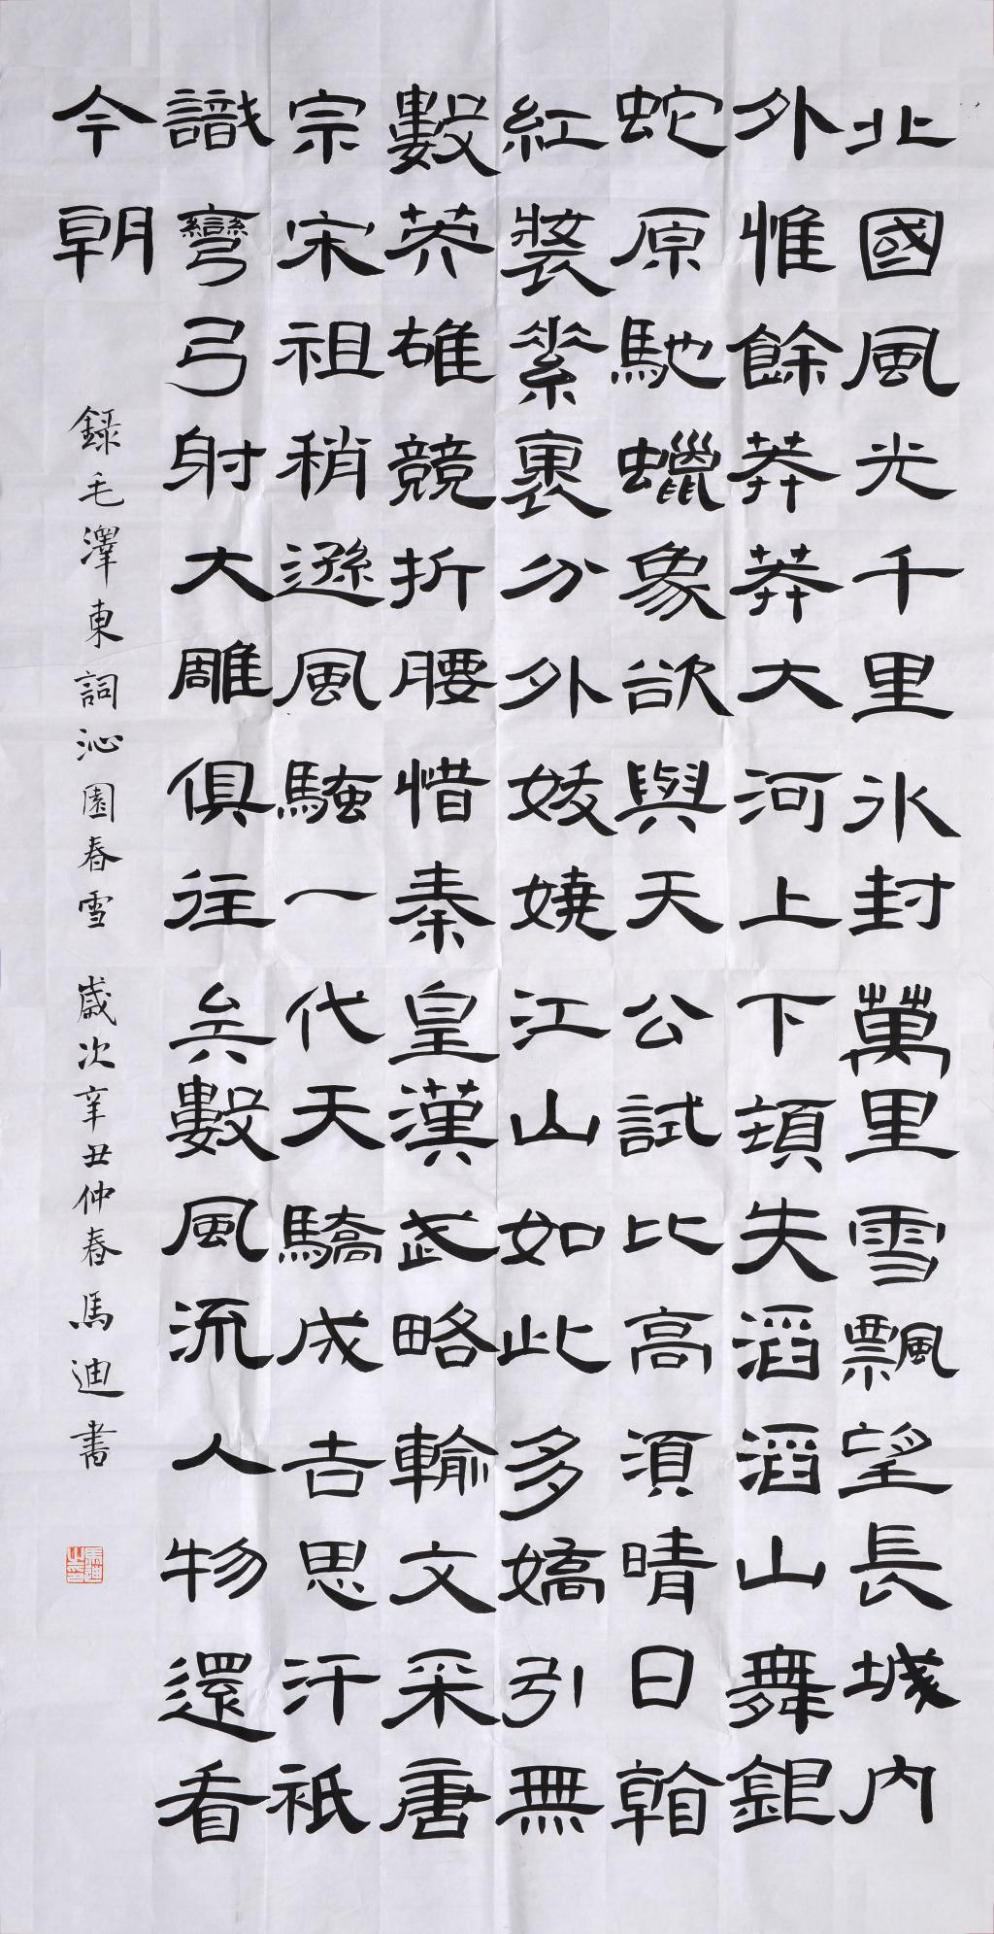 北國風光千里冰封萬里雪飄望長城内
外惟餘莽莽大河上下頓失滔滔山舞銀
蛇原馳蠟象欲與天公試比高須晴日看
紅裝素裹分外妖嬈江山如此多嬌引無
數英雄競折腰惜秦皇漢武略輸文采唐
宗宋祖稍遜風騷一代天驕成吉思汗祇
識彎弓射大雕俱往矣數風流人物還看
今朝
錄毛澤東詞沁園春雪 歲次辛丑仲春馬迪書
馬迪之印